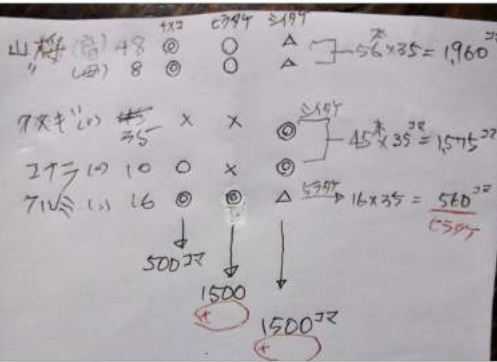 ナメコ ヒラタケ シイタケ
山桜(宿) 48 ◎ ○ △
〃 (母) 8 ◎ ○ △ 56本×35=1,960コマ
クヌギ(〃) 35 × × ◎ シイタケ 45本×35コマ=1,575コマ
コナラ(〃) 10 ○ × ◎
クルミ(〃) 16 ◎ ◎ △ ヒラタケ→ 16×35=560コマ
ヒラタケ
500コマ
1500
+
1500コマ
+